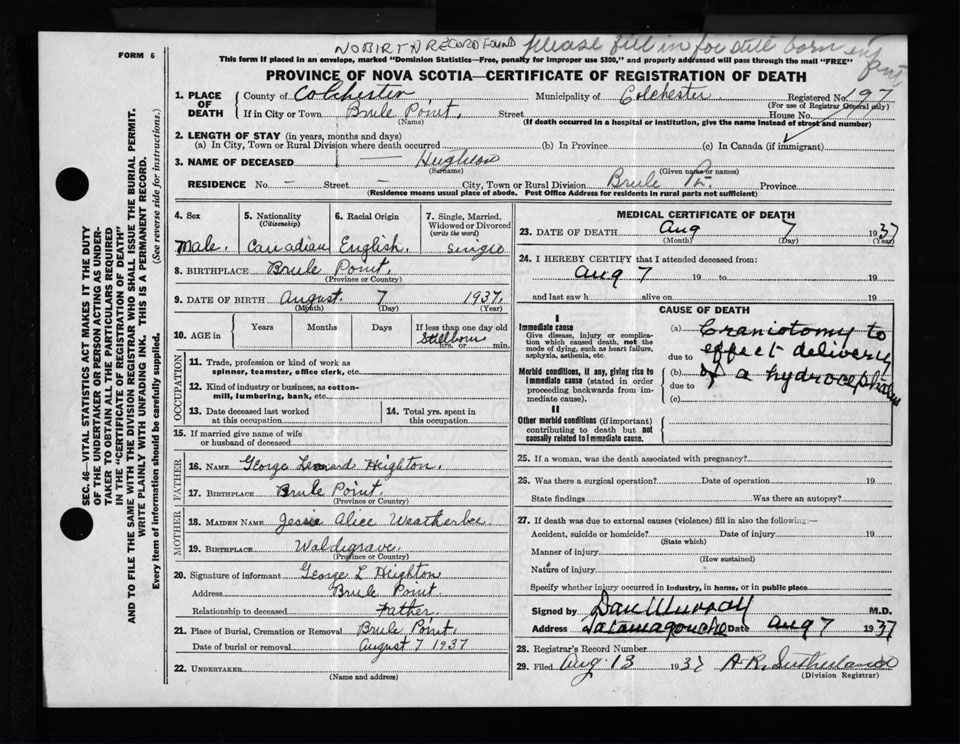 NO BIRTH RECORD FOUND please fill in for still born
FORM 6
This form if placed in an envelope, marked "Dominion Statistics—Free, penalty for improper use $300," and properly addressed will pass through the mail "FREE"
PROVINCE OF NOVA SCOTIA—CERTIFICATE OF REGISTRATION OF DEATH
1. PLACE OF DEATH County of Colchester Municipality of Colchester Registered No. 197
(For use of Registrar General only)
If in City or Town Brule Point. Street House No.
(Name) (If death occurred in a hospital or institution, give the name instead of street and number)
2. LENGTH OF STAY (in years, months and days)
(a) In City, Town or Rural Division where death occurred (b) In Province (c) In Canada (if immigrant)
3. NAME OF DECEASED —
(Surname) (Given name or names)
RESIDENCE No. – Street – City, Town or Rural Division Brule Pt. Province
(Residence means usual place of abode. Post Office Address for residents in rural parts not sufficient)
4. Sex 5. Nationality 6. Racial Origin 7. Single, Married,
(Citizenship) Widowed or Divorced
(write the word)
Male. Canadian English. Single
8. BIRTHPLACE Brule Point.
(Province or Country)
9. DATE OF BIRTH August. 7 1937.
(Month) (Day) (Year)
10. AGE in Years Months Days If less than one day old
Stillborn
hrs. or min.
OCCUPATION
11. Trade, profession or kind of work as
spinner, teamster, office clerk, etc.
12. Kind of industry or business, as cotton-
mill, lumbering, bank, etc.
13. Date deceased last worked 14. Total yrs. spent in
at this occupation this occupation
15. If married give name of wife
or husband of deceased
FATHER
16. NAME George Leonard Heighton.
17. BIRTHPLACE Brule Point.
(Province or Country)
MOTHER
18. MAIDEN NAME Jessie Alice Weatherbee
19. BIRTHPLACE Waldegrave.
(Province or Country)
20. Signature of informant George L Heighton
Address Brule Point.
Relationship to deceased Father.
21. Place of Burial, Cremation or Removal Brule Point.
Date of burial or removal August 7 1937
22. UNDERTAKER
(Name and address)
MEDICAL CERTIFICATE OF DEATH
23. DATE OF DEATH Aug 7 1937
(Month) (Day) (Year)
24. I HEREBY CERTIFY that I attended deceased from:
Aug 7 19 to 19
and last saw h alive on 19
CAUSE OF DEATH
I
Immediate cause
Give disease, injury or complica-
tion which caused death, not the
mode of dying, such as heart failure,
asphyxia, asthenia, etc.
(a) Craniotomy to
due to effect delivery
Morbid conditions, if any, giving rise to
immediate cause (stated in order
proceeding backwards from im-
mediate cause).
(b) of a hydrocephalus
due to
(c)
II
Other morbid conditions (if important)
contributing to death but not
causally related to immediate cause.
25. If a woman, was the death associated with pregnancy?
26. Was there a surgical operation? Date of operation 19
State findings Was there an autopsy?
27. If death was due to external causes (violence) fill in also the following:—
Accident, suicide or homicide? Date of injury 19
(State which)
Manner of injury
(How sustained)
Nature of injury
Specify whether injury occurred in industry, in home, or in public place
Signed by Dan Murray M.D.
Address Tatamagouche Date Aug 7 1937
28. Registrar's Record Number
29. Filed Aug 13 1937 A R. Sutherland
(Division Registrar)
SEC. 46—VITAL STATISTICS ACT MAKES IT THE DUTY
OF THE UNDERTAKER OR PERSON ACTING AS UNDER-
TAKER TO OBTAIN ALL THE PARTICULARS REQUIRED
IN THE "CERTIFICATE OF REGISTRATION OF DEATH"
AND TO FILE THE SAME WITH THE DIVISION REGISTRAR WHO SHALL ISSUE THE BURIAL PERMIT.
WRITE PLAINLY WITH UNFADING INK. THIS IS A PERMANENT RECORD.
Every item of information should be carefully supplied. (See reverse side for instructions.)